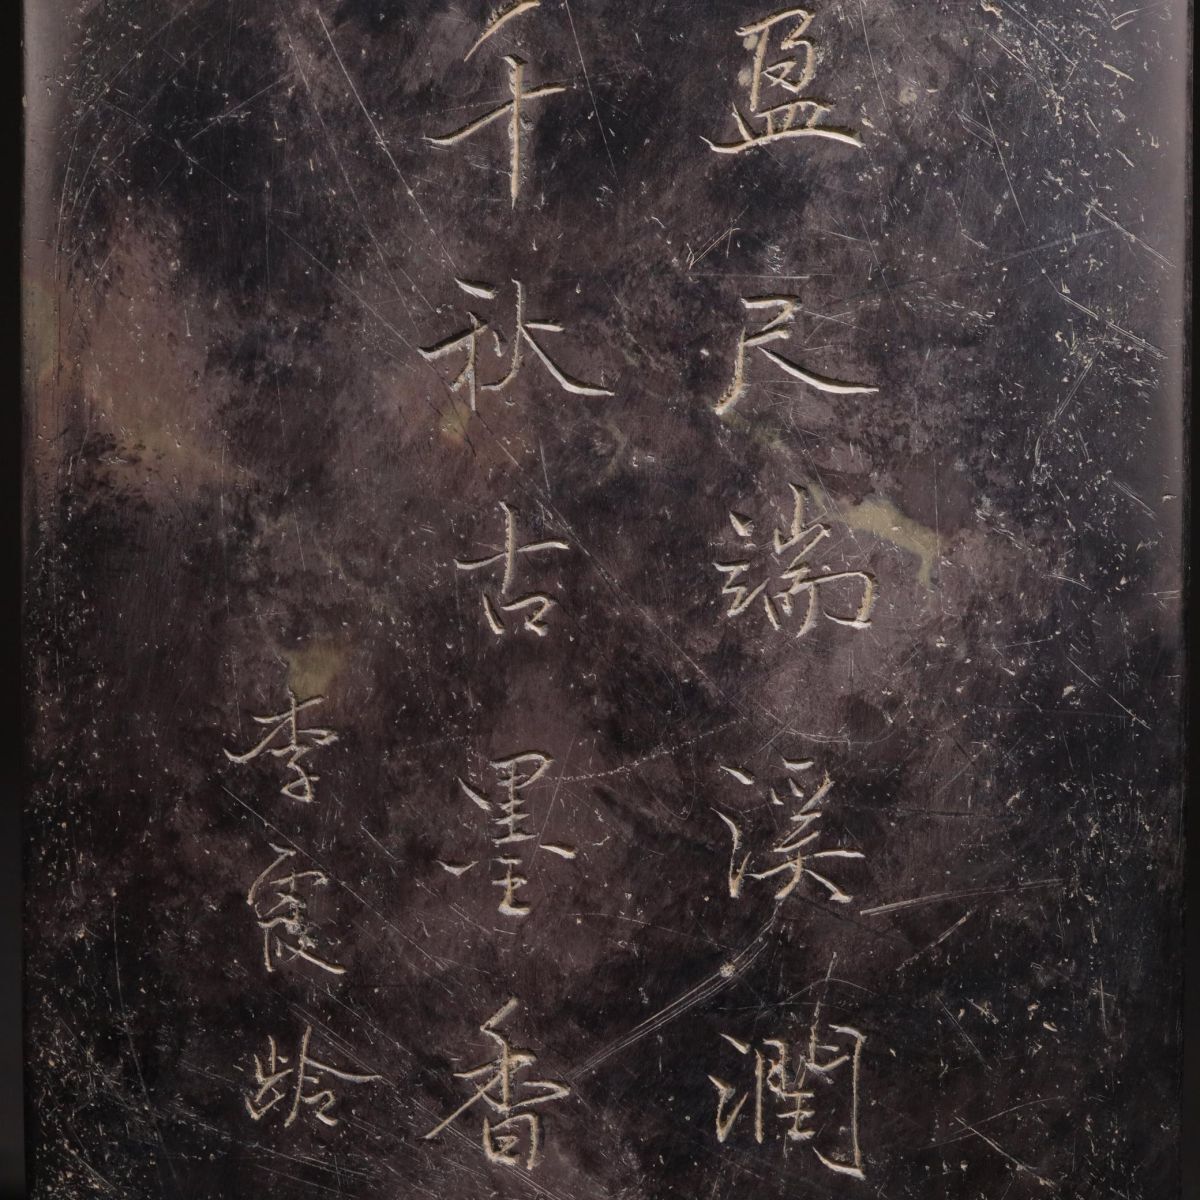 盈尺端溪潤
千秋古墨香
李霞齡